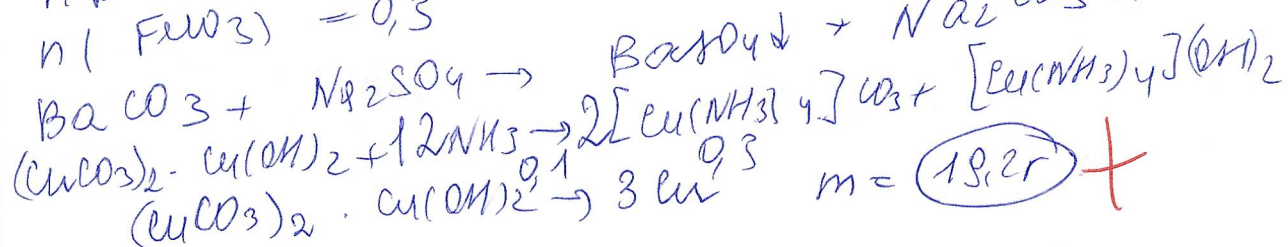 n( FeCO3) = 0,3
BaCO3 + Na2SO4 → BaSO4↓ + Na2
(CuCO3)2 · Cu(OH)2 + 12NH3 → 2[Cu(NH3)4]CO3 + [Cu(NH3)4](OH)2
0,1 0,3
(CuCO3)2 · Cu(OH)2 → 3 Cu m = 19,2г +